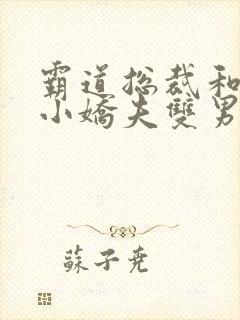 霸道总裁和
小嬌夫雙男
蘇子堯